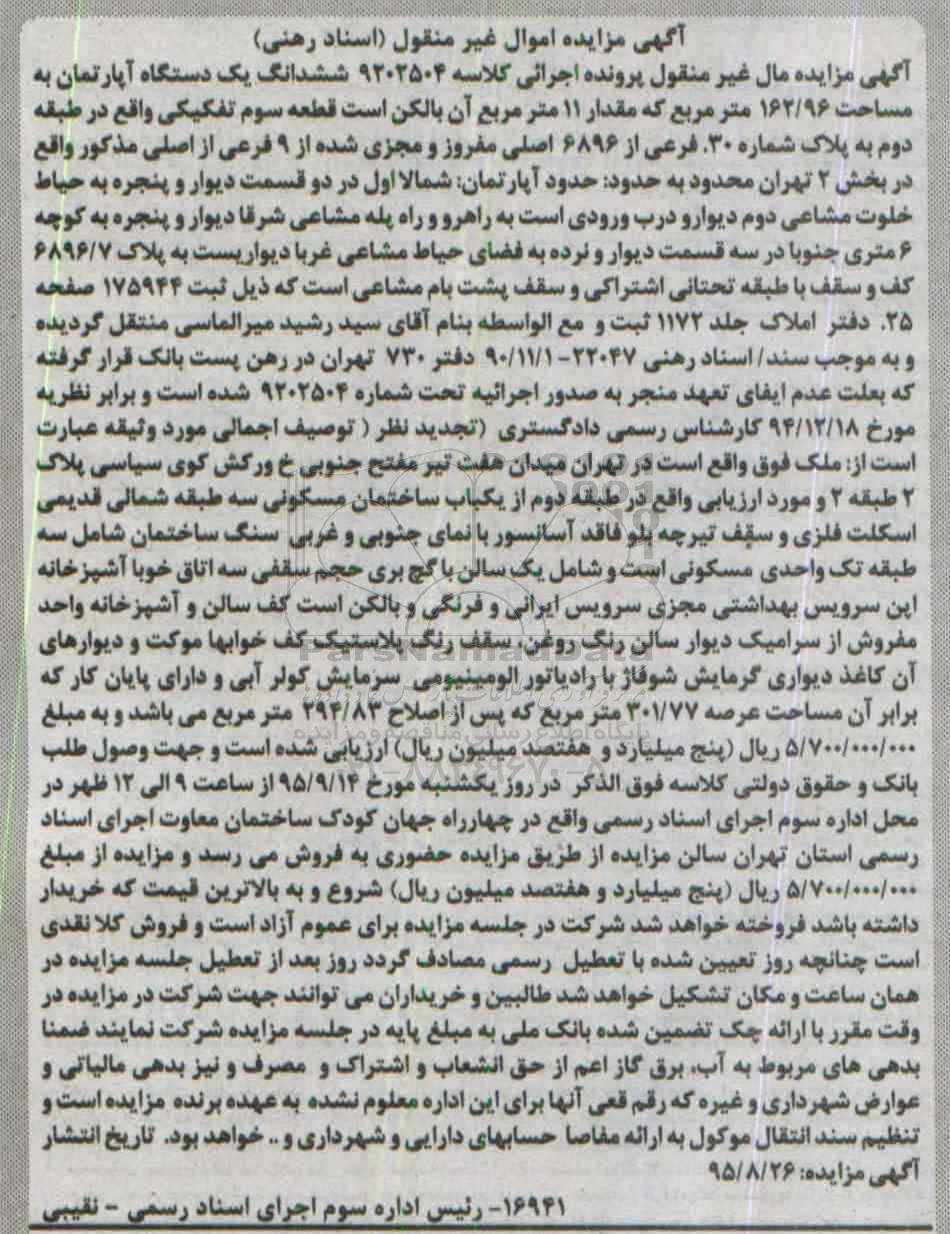 آگهی مزایده اموال غیر منقول (اسناد رهنی)
آگهی مزایده مال غیر منقول پرونده اجرائی کلاسه ۹۲۰۲۵۰۴ ششدانگ یک دستگاه آپارتمان به
مساحت ۱۶۲/۹۶ متر مربع که مقدار ۱۱ متر مربع آن بالکن است قطعه سوم تفکیکی واقع در طبقه
دوم به پلاک شماره ۳۰. فرعی از ۶۸۹۶ اصلی مفروز و مجزی شده از ۹ فرعی از اصلی مذکور واقع
در بخش ۲ تهران محدود به حدود: حدود آپارتمان: شمالا اول در دو قسمت دیوار و پنجره به حیاط
خلوت مشاعی دوم دیوارو درب ورودی است به راهرو و راه پله مشاعی شرقا دیوار و پنجره به کوچه
۶ متری جنوبا در سه قسمت دیوار و نرده به فضای حیاط مشاعی غربا دیواریست به پلاک ۶۸۹۶/۷
کف و سقف با طبقه تحتانی اشتراکی و سقف پشت بام مشاعی است که ذیل ثبت ۱۷۵۹۴۴ صفحه
۲۵. دفتر املاک جلد ۱۱۷۲ ثبت و مع الواسطه بنام آقای سید رشید میرالماسی منتقل گردیده
و به موجب سند/ اسناد رهنی ۲۲۰۴۷-۹۰/۱۱/۱ دفتر ۷۳۰ تهران در رهن پست بانک قرار گرفته
که بعلت عدم ایفای تعهد منجر به صدور اجرائیه تحت شماره ۹۲۰۲۵۰۴ شده است و برابر نظریه
مورخ ۹۴/۱۲/۱۸ کارشناس رسمی دادگستری (تجدید نظر ( توصیف اجمالی مورد وثیقه عبارت
است از: ملک فوق واقع است در تهران میدان هفت تیر مفتح جنوبی خ ورکش کوی سیاسی پلاک
۲ طبقه ۲ و مورد ارزیابی واقع در طبقه دوم از یکباب ساختمان مسکونی سه طبقه شمالی قدیمی
اسکلت فلزی و سقف تیرچه بلو فاقد آسانسور با نمای جنوبی و غربی سنگ ساختمان شامل سه
طبقه تک واحدی مسکونی است و شامل یک سالن با گچ بری حجم سقفی سه اتاق خوبا آشپزخانه
اپن سرویس بهداشتی مجزی سرویس ایرانی و فرنگی و بالکن است کف سالن و آشپزخانه واحد
مفروش از سرامیک دیوار سالن رنگ روغن، سقف رنگ پلاستیک کف خوابها موکت و دیوارهای
آن کاغذ دیواری گرمایش شوفاژ با رادیاتور الومینیومی سرمایش کولر آبی و دارای پایان کار که
برابر آن مساحت عرصه ۳۰۱/۷۷ متر مربع که پس از اصلاح ۲۹۴/۸۳ متر مربع می باشد و به مبلغ
۵/۷۰۰/۰۰۰/۰۰۰ ریال (پنج میلیارد و هفتصد میلیون ریال) ارزیابی شده است و جهت وصول طلب
بانک و حقوق دولتی کلاسه فوق الذکر در روز یکشنبه مورخ ۹۵/۹/۱۴ از ساعت ۹ الی ۱۲ ظهر در
محل اداره سوم اجرای اسناد رسمی واقع در چهارراه جهان کودک ساختمان معاوت اجرای اسناد
رسمی استان تهران سالن مزایده از طریق مزایده حضوری به فروش می رسد و مزایده از مبلغ
۵/۷۰۰/۰۰۰/۰۰۰ ریال (پنج میلیارد و هفتصد میلیون ریال) شروع و به بالاترین قیمت که خریدار
داشته باشد فروخته خواهد شد شرکت در جلسه مزایده برای عموم آزاد است و فروش کلا نقدی
است چنانچه روز تعیین شده با تعطیل رسمی مصادف گردد روز بعد از تعطیل جلسه مزایده در
همان ساعت و مکان تشکیل خواهد شد طالبین و خریداران می توانند جهت شرکت در مزایده در
وقت مقرر با ارائه چک تضمین شده بانک ملی به مبلغ پایه در جلسه مزایده شرکت نمایند ضمنا
بدهی های مربوط به آب، برق گاز اعم از حق انشعاب و اشتراک و مصرف و نیز بدهی مالیاتی و
عوارض شهرداری و غیره که رقم قعی آنها برای این اداره معلوم نشده به عهده برنده مزایده است و
تنظیم سند انتقال موکول به ارائه مفاصا حسابهای دارایی و شهرداری و .. خواهد بود. تاریخ انتشار
آگهی مزایده: ۹۵/۸/۲۶
۱۶۹۴۱- رئیس اداره سوم اجرای اسناد رسمی - نقیبی
ParsNamadData
پایگاه اطلاع رسانی مناقصه و مزایده